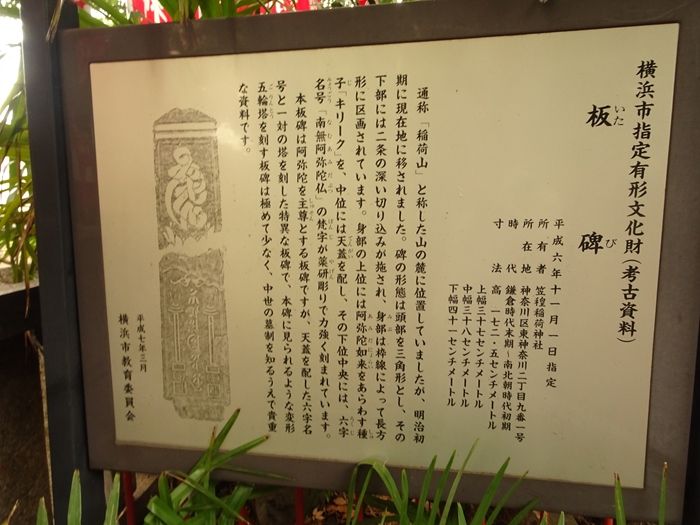 横浜市指定有形文化財(考古資料)
板碑
いた び
平成六年十一月一日指定
所有者 笠䅣稲荷神社
所在地 神奈川区東神奈川二丁目九番一号
時代 鎌倉時代末期~南北朝時代初期
寸法 高 一七二・五センチメートル
上幅三十七センチメートル
中幅三十八センチメートル
下幅四十一センチメートル
通称「稲荷山」と称した山の麓に位置していましたが、明治初
期に現在地に移されました。碑の形態は頭部を三角形とし、その
下部には二条の深い切り込みが施され、身部は枠線によって長方
形に区画されています。身部の上位には阿弥陀如来をあらわす種
子「キリーク」を、中位には天蓋を配し、その下位中央には、六字
名号「南無阿弥陀仏」の梵字が薬研彫りで力強く刻まれています。
本板碑は阿弥陀を主尊とする板碑ですが、天蓋を配した六字名
号と一対の塔を刻した特異な板碑で、本碑に見られるような変形
五輪塔を刻す板碑は極めて少なく、中世の墓制を知るうえで貴重
な資料です。
平成七年三月
横浜市教育委員会